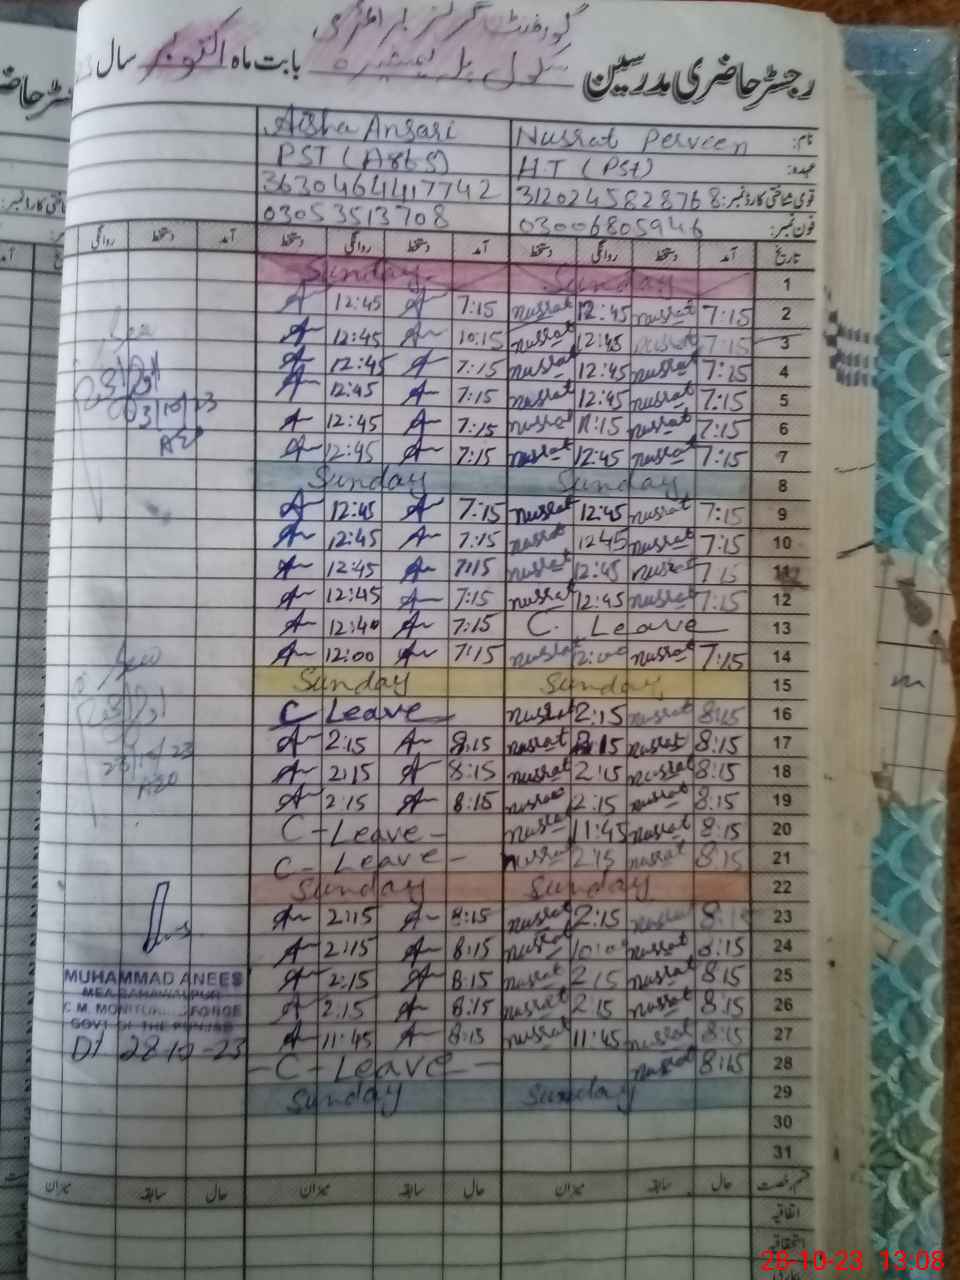 گورنمنٹ گرلز پرائمری
رجسٹر حاضری مدرسین سکول بابت ماہ اکتوبر سال
نام: Nusrat Perveen Aisha Ansari
عہدہ: H.T (PST) PST (
قومی شناختی کارڈ نمبر: 3120245828768 3630464417742
فون نمبر: 03006805946 03053513708
تاریخ آمد دستخط روانگی دستخط آمد دستخط روانگی دستخط آمد دستخط روانگی
1 Sunday Sunday
2 7:15 nusrat 12:45 nusrat 7:15 A 12:45 A
3 7:15 nusrat 12:45 nusrat 10:15 A 12:45 A
4 7:15 nusrat 12:45 nusrat 7:15 A 12:45 A
5 7:15 nusrat 12:45 nusrat 7:15 A 12:45 A
6 7:15 nusrat 11:15 nusrat 7:15 A 12:45 A
7 7:15 nusrat 12:45 nusrat 7:15 A 12:45 A
8 Sunday Sunday
9 7:15 nusrat 12:45 nusrat 7:15 A 12:45 A
10 7:15 nusrat 1245 nusrat 7:15 A 12:45 A
11 7:15 nusrat 12:45 nusrat 7:15 A 12:45 A
12 7:15 nusrat 12:45 nusrat 7:15 A 12:45 A
13 C. Leave 7:15 A 12:40 A
14 7:15 nusrat 12:00 nusrat 7:15 A 12:00 A
15 Sunday Sunday
16 8:15 nusrat 2:15 nusrat C Leave
17 8:15 nusrat 2:15 nusrat 8:15 A 2:15 A
18 8:15 nusrat 2:15 nusrat 8:15 A 2:15 A
19 8:15 nusrat 2:15 nusrat 8:15 A 2:15 A
20 8:15 nusrat 11:45 nusrat C - Leave -
21 8:15 nusrat 2:15 nusrat C - Leave -
22 Sunday Sunday
23 8:15 nusrat 2:15 nusrat 8:15 A 2:15 A
24 8:15 nusrat 10:00 nusrat 8:15 A 2:15 A
25 8:15 nusrat 2:15 nusrat 8:15 A 2:15 A
26 8:15 nusrat 2:15 nusrat 8:15 A 2:15 A
27 8:15 nusrat 11:45 nusrat 8:15 A 11:45 A
28 8:15 nusrat - C - Leave -
29 Sunday Sunday
30
31
قسم رخصت حال سابقہ میزان حال سابقہ میزان حال سابقہ میزان
اتفاقیہ
استحقاقیہ
03/10/23
MUHAMMAD ANEES
MEA BAHAWALPUR
C.M. MONITORING FORCE
GOVT OF THE PUNJAB
Dt 28-10-23
28-10-23 13:08